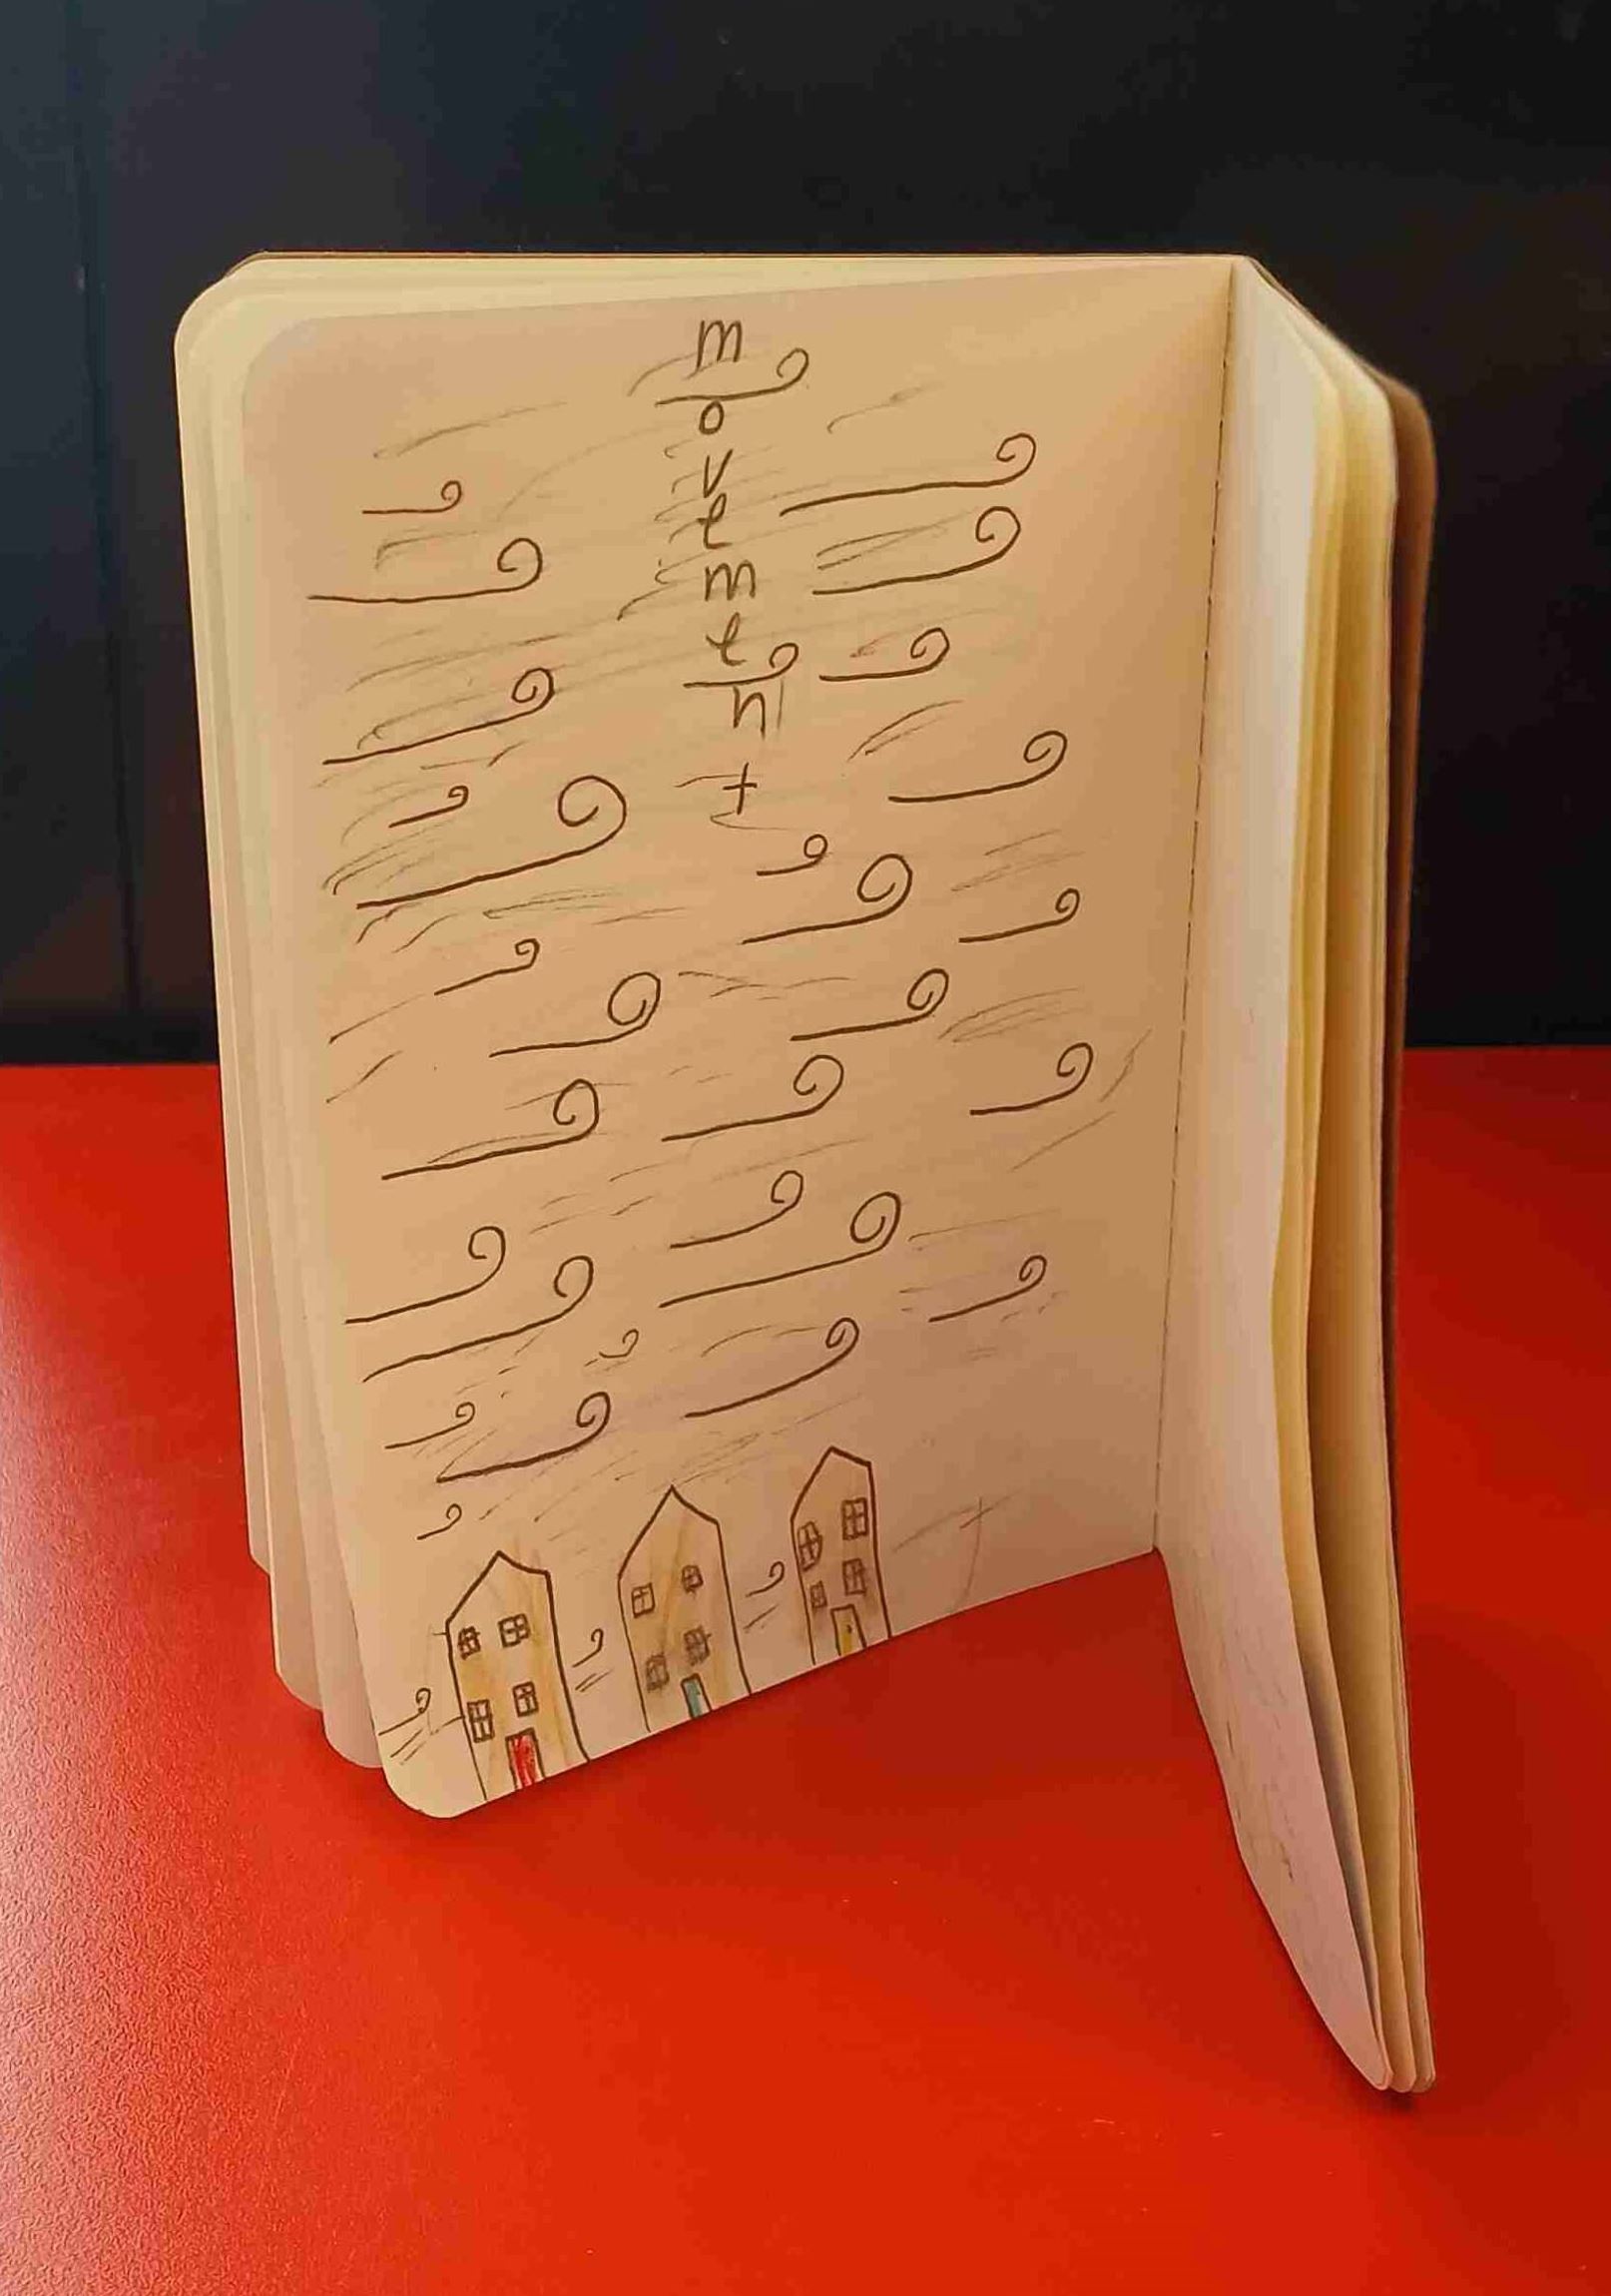 m
o
v
e
m
e
n
t